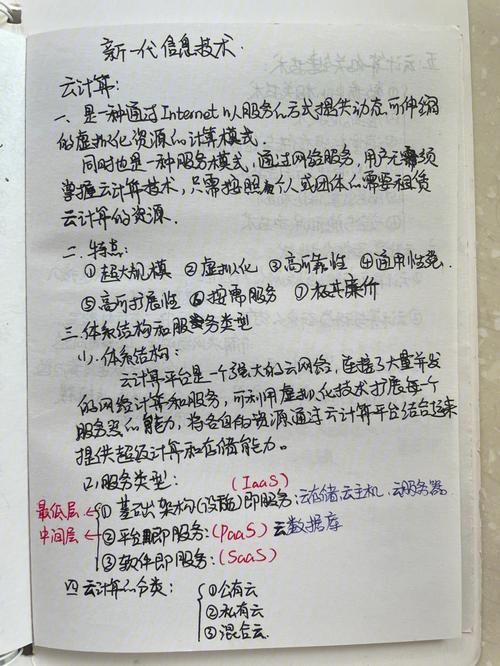 新一代信息技术.
云计算:
一、是一种通过Internet以服务的方式提供动态可伸缩
的虚拟化资源的计算模式.
同时也是一种服务模式,通过网络服务,用户无需须
掌握云计算技术,只需按照个人或团体的需要租赁
云计算的资源.
二、特点:
①超大规模 ②虚拟化 ③高可靠性 ④通用性强.
⑤高可扩展性 ⑥按需服务 ⑦极其廉价
三、体系结构和服务类型
(1). 体系结构:
云计算平台是一个强大的云网络,连接了大量并发
的网络计算和服务,可利用虚拟化技术扩展每个
服务器的能力,将各自的资源通过云计算平台结合起来
提供超级计算和存储能力。
(2)服务类型: (IaaS)
最低层 ① 基础架构(设施)即服务:云存储、云主机、云服务器
中间层 ②平台即服务:(PaaS) 云数据库
③软件即服务:(SaaS)
四 云计算的分类: ①公有云
②私有云
③混合云.